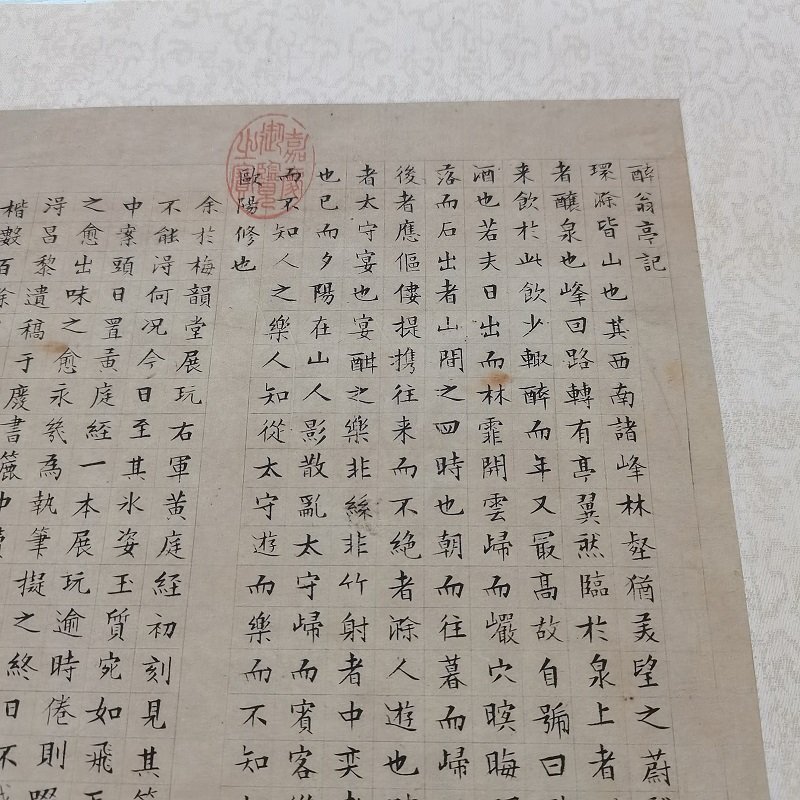 醉翁亭記
環滁皆山也其西南諸峰林壑猶美望之蔚
者釀泉也峰回路轉有亭翼然臨於泉上者
来飲於此飲少輙醉而年又最高故自號曰
酒也若夫日出而林霏開雲歸而巖穴暝晦
落而石出者山間之四時也朝而往暮而歸
後者應傴僂提携往来而不絶者滁人遊也
者太守宴也宴酣之樂非絲非竹射者中奕
也已而夕陽在山人影散亂太守歸而賓客
而不知人之樂人知從太守遊而樂而不知
歐陽修也
嘉慶御覽之寶
余於梅韻堂展玩右軍黄庭經初刻見其
不能淂何况今日至其氷姿玉質宛如飛
中案頭日置黄庭經一本展玩逾時倦則
之愈出味之愈永㡬為執筆擬之終日不
淂吕黎遺稿于慶書簏中
楷數百餘